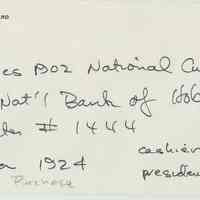 es 1902 National Cu
Nat'l Bank of Hob
ter # 1444
cashier
1924
president
Purchase